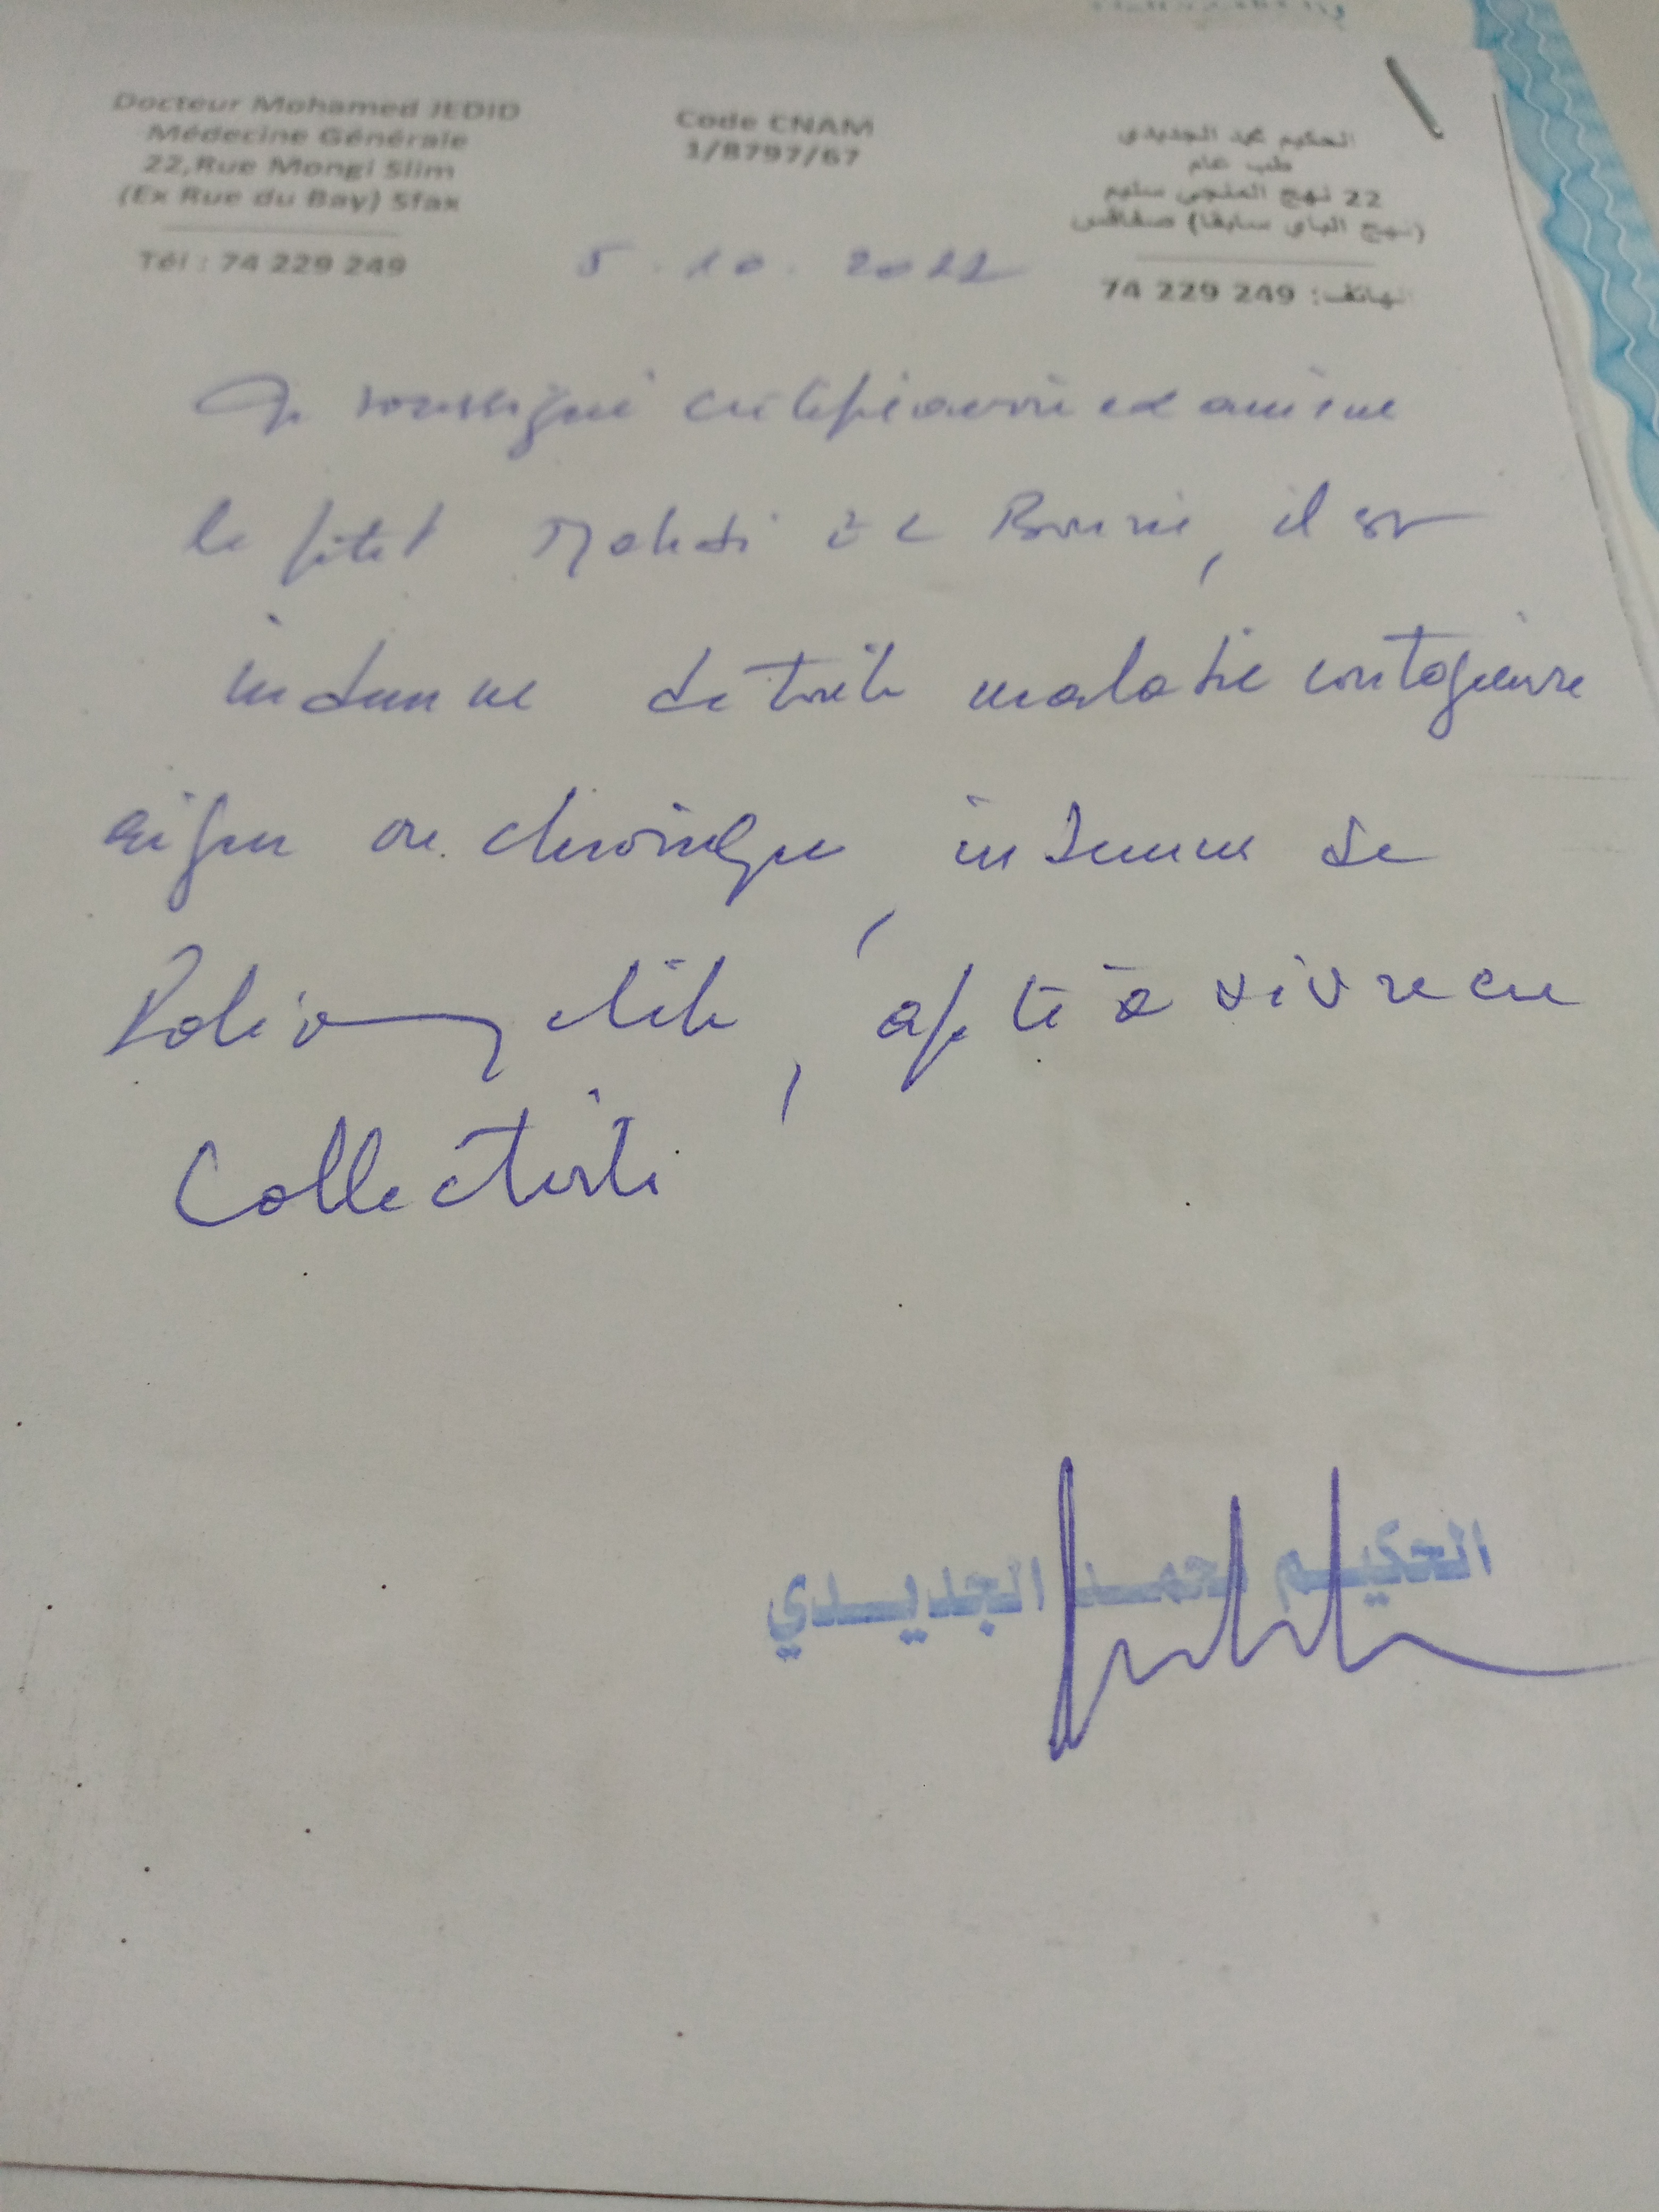 Docteur Mohamed JEDID
Médecine Générale
22,Rue Mongi Slim
(Ex Rue du Bay) Sfax
Tél : 74 229 249
Code CNAM
1/8797/67
الحكيم محمد الجديدي
طب عام
22 نهج المنجي سليم
(نهج الباي سابقا) صفاقس
الهاتف: 74 229 249
5.10.2022
Je soussigné certifie avoir examiné
le petit Mahdi, il est
indemne de toute maladie contagieuse
aigue ou chronique, indemne de
Poliomyelite, apte à vivre en
Collectivité
الحكيم محمد الجديدي